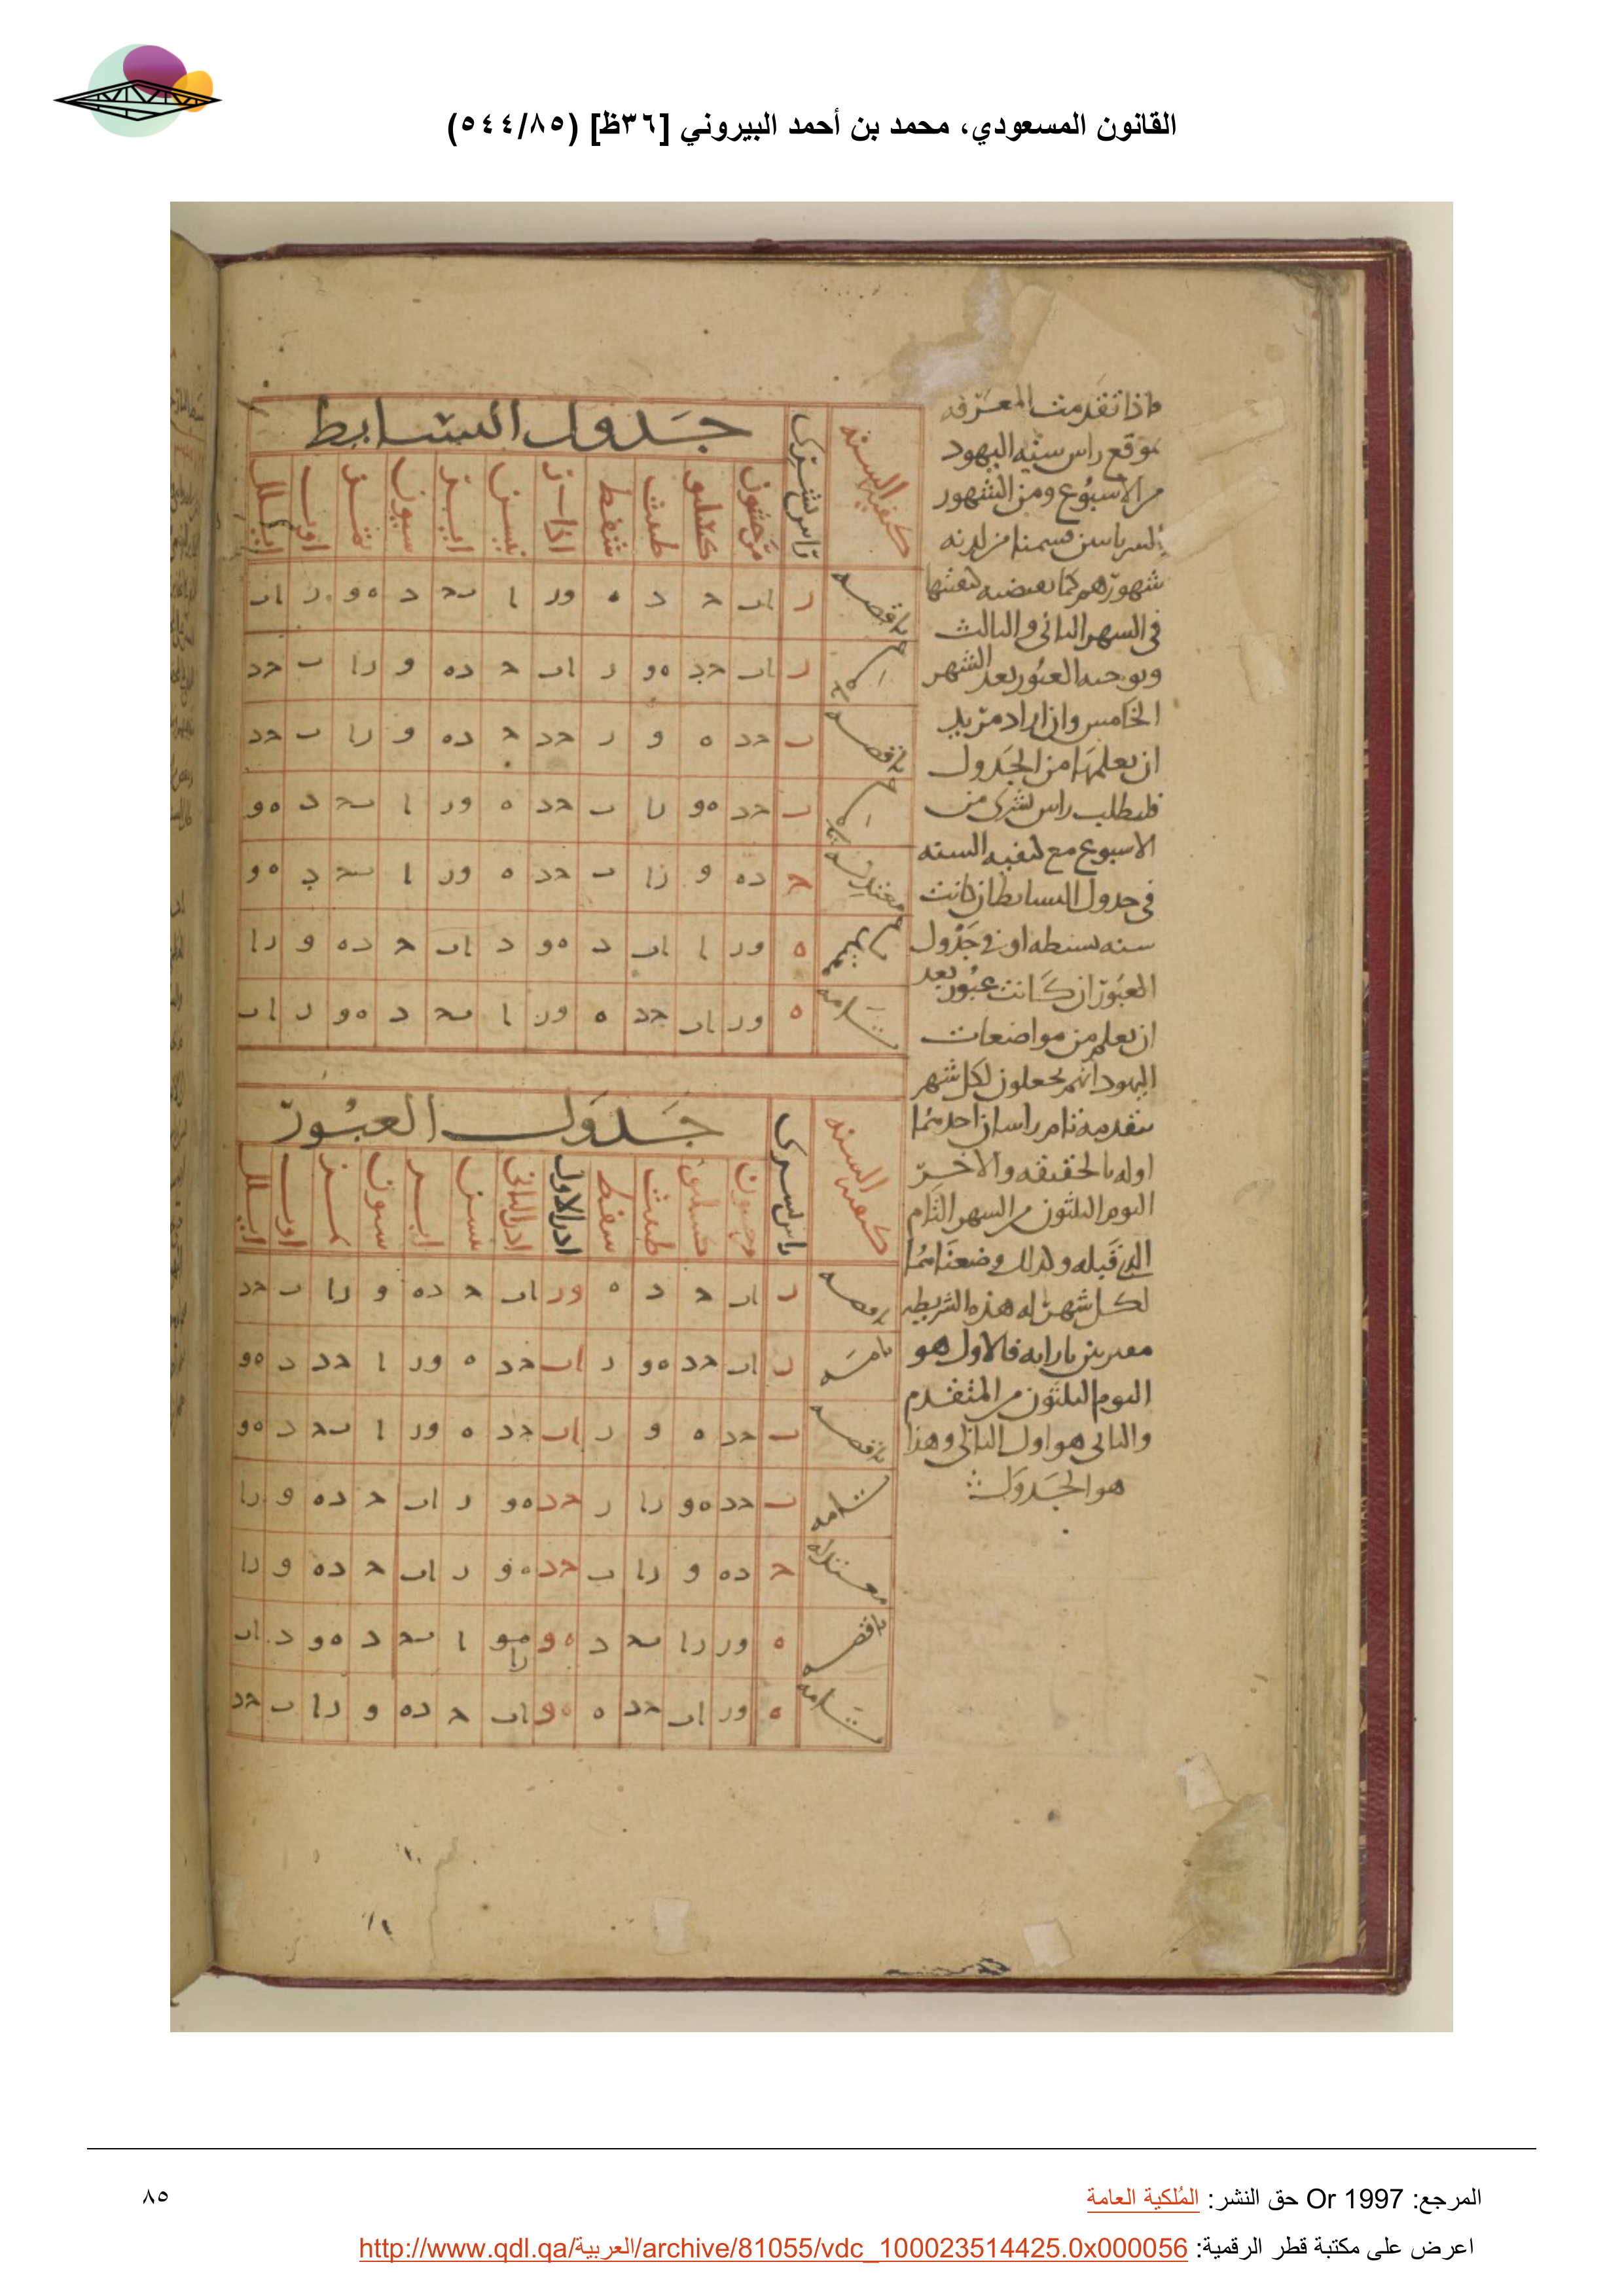 القانون المسعودي، محمد بن أحمد البيروني [٣٦ظ] (٥٤٤/٨٥)
فاذا تقدمت المعرفه
بموقع راس سنه اليهود
من الاسبوع ومن الشهور
شهورهم كما يقتضيه كيفيتها
فى الشهر الثانى والثالث
ويوجبه العبور بعد الشهر
الخامس وان اراد مريد
ان يعلمها من الجدول
فليطلب راس تشرى من
الاسبوع مع كيفيه السنه
فى جدول البسايط ان كانت
سنه بسيطه او فى جدول
العبور ان كانت عبور بعد
ان يعلم من مواضعات
اليهود انهم يجعلون لكل شهر
يتقدمه تام راسان احدهما
اوله بالحقيقه والاخر
اليوم الثلثون من الشهر التام
الذى قبله ولذلك وضعناهما
لكل شهر له هذه الشريطه
فالاول هو
اليوم الثلثون من المتقدم
والثانى هو اول الثانى وهذا
هو الجدول
كيفيه السنه
راس تشرى
جدول البسايط
مرحشون
كسليو
طبث
شفط
اذار
نيسن
اير
سيون
تمز
اوب
ايلل
ناقصه
ر
اب
ح
د
ه
ور
ا
بح
د
هو
ر
اب
ر
اب
حد
هو
ر
اب
ح
ده
و
را
ب
حد
ناقصه
ب
حد
ه
و
ر
حد
ح
ده
و
را
ب
حد
ب
حد
هو
را
ب
حد
ه
ور
ا
بح
د
هو
معتدله
ح
ده
و
را
ب
حد
ه
ور
ا
بح
د
هو
ه
ور
ا
اب
د
هو
د
اب
ح
ده
و
را
تامه
ه
ور
اب
حد
ه
ور
ا
بح
د
هو
ر
اب
كيفيه السنه
راس تشرى
جدول العبور
كسليو
طبث
شفط
ادر الاول
ادر الثانى
نيسن
اير
سيون
تمز
اوب
ايلل
ناقصه
ر
اب
ح
د
ه
ور
اب
ح
ده
و
را
ب
حد
تامه
ر
اب
حد
هو
ر
اب
حد
ه
ور
ا
حد
د
هو
ناقصه
ب
حد
ه
و
ر
اب
حد
ه
ور
ا
بحد
د
هو
تامه
ب
حد
هو
را
ر
حد
هو
ر
اب
ح
ده
و
را
معتدله
ح
ده
و
را
ب
حد
هو
ر
اب
ح
ده
و
را
ناقصه
ه
ور
را
بح
د
هو
را
ا
بح
د
هو
د
اب
تامه
ه
ور
اب
حد
ه
هو
اب
ح
ده
و
را
ب
حد
المرجع: Or 1997 حق النشر: المُلكية العامة
٨٥
اعرض على مكتبة قطر الرقمية: http://www.qdl.qa/العربية/archive/81055/vdc_100023514425.0x000056